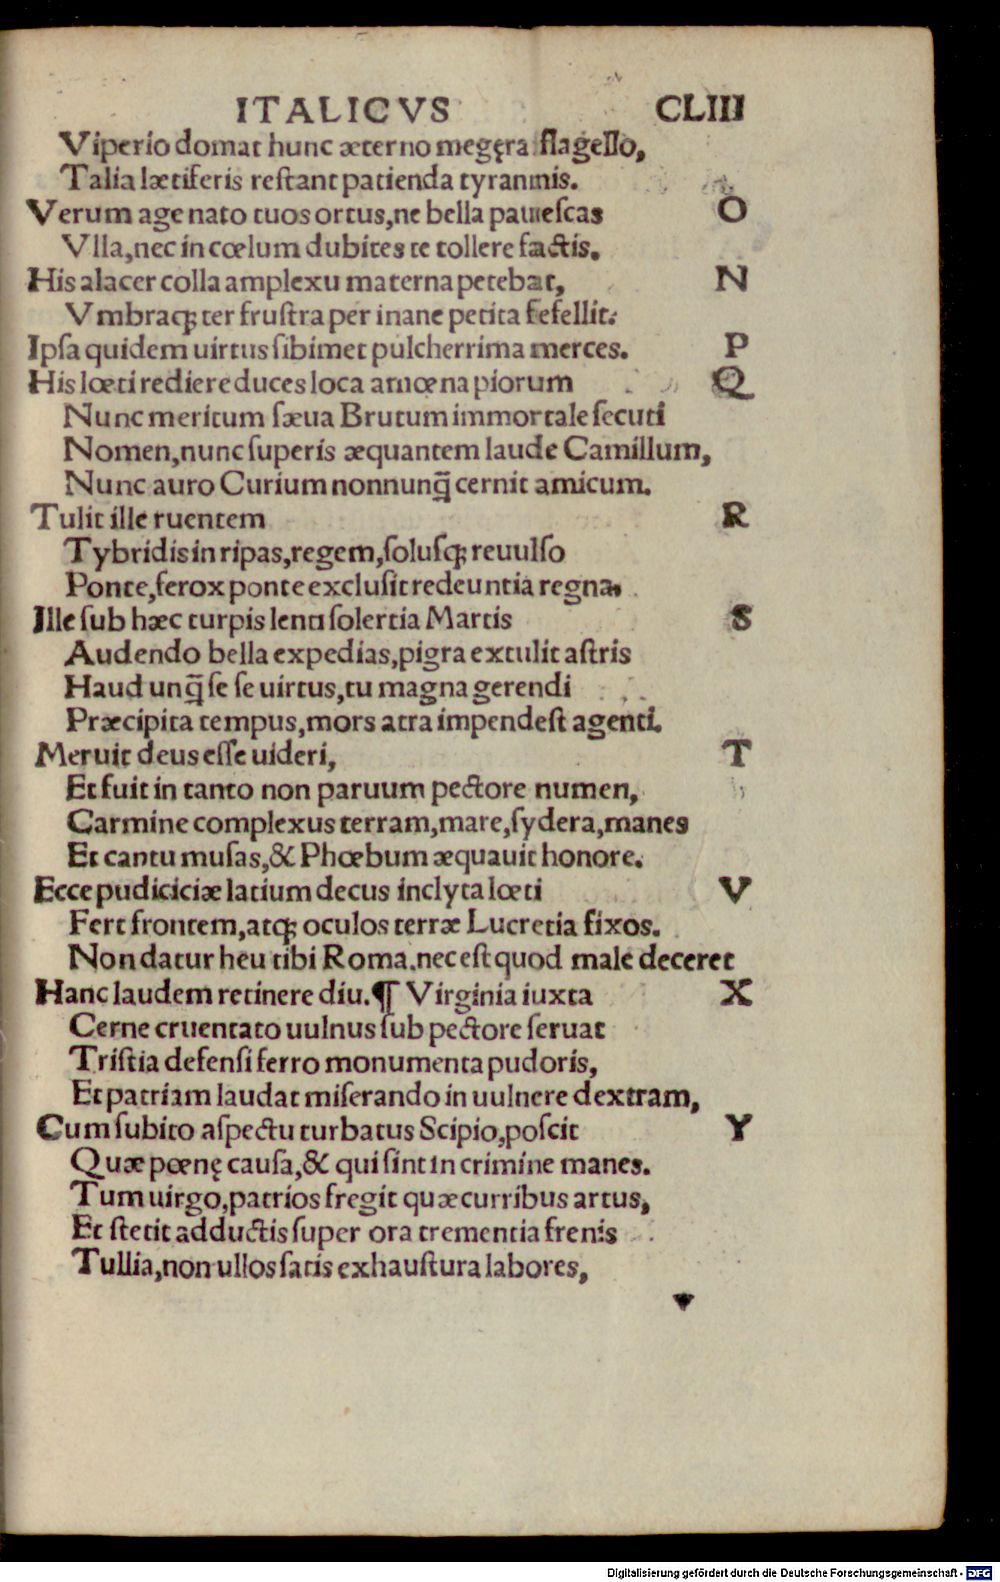 ITALICVS CLIII
Viperio domat hunc æterno megęra flagello,
Talia lætiferis restant patienda tyrannis.
Verum age nato tuos ortus, ne bella pauescas O
Vlla, nec in cœlum dubites te tollere factis.
His alacer colla amplexu materna petebat, N
Vmbraqꝫ ter frustra per inane petita fefellit.
Ipsa quidem uirtus sibimet pulcherrima merces. P
His lœti rediere duces loca amœna piorum Q
Nunc meritum sæua Brutum immortale secuti
Nomen, nunc superis æquantem laude Camillum,
Nunc auro Curium nonnunq̃ cernit amicum.
Tulit ille ruentem R
Tybridis in ripas, regem, solusqꝫ reuulso
Ponte, ferox ponte exclusit redeuntia regna.
Ille sub hæc turpis lenti solertia Martis S
Audendo bella expedias, pigra extulit astris
Haud unq̃ se se uirtus, tu magna gerendi
Præcipita tempus, mors atra impendest agenti.
Meruit deus esse uideri, T
Et fuit in tanto non paruum pectore numen,
Carmine complexus terram, mare, sydera, manes
Et cantu musas, & Phœbum æquauit honore.
Ecce pudiciciæ latium decus inclyta lœti V
Fert frontem, atqꝫ oculos terræ Lucretia fixos.
Non datur heu tibi Roma. nec est quod male deceret
Hanc laudem retinere diu. ¶ Virginia iuxta X
Cerne cruentato uulnus sub pectore seruat
Tristia defensi ferro monumenta pudoris,
Et patriam laudat miserando in uulnere dextram,
Cum subito aspectu turbatus Scipio, poscit Y
Quæ pœnę causa, & qui sint in crimine manes.
Tum uirgo, patrios fregit quæ curribus artus,
Et stetit adductis super ora trementia frenis
Tullia, non ullos satis exhaustura labores,
Digitalisierung gefördert durch die Deutsche Forschungsgemeinschaft - DFG